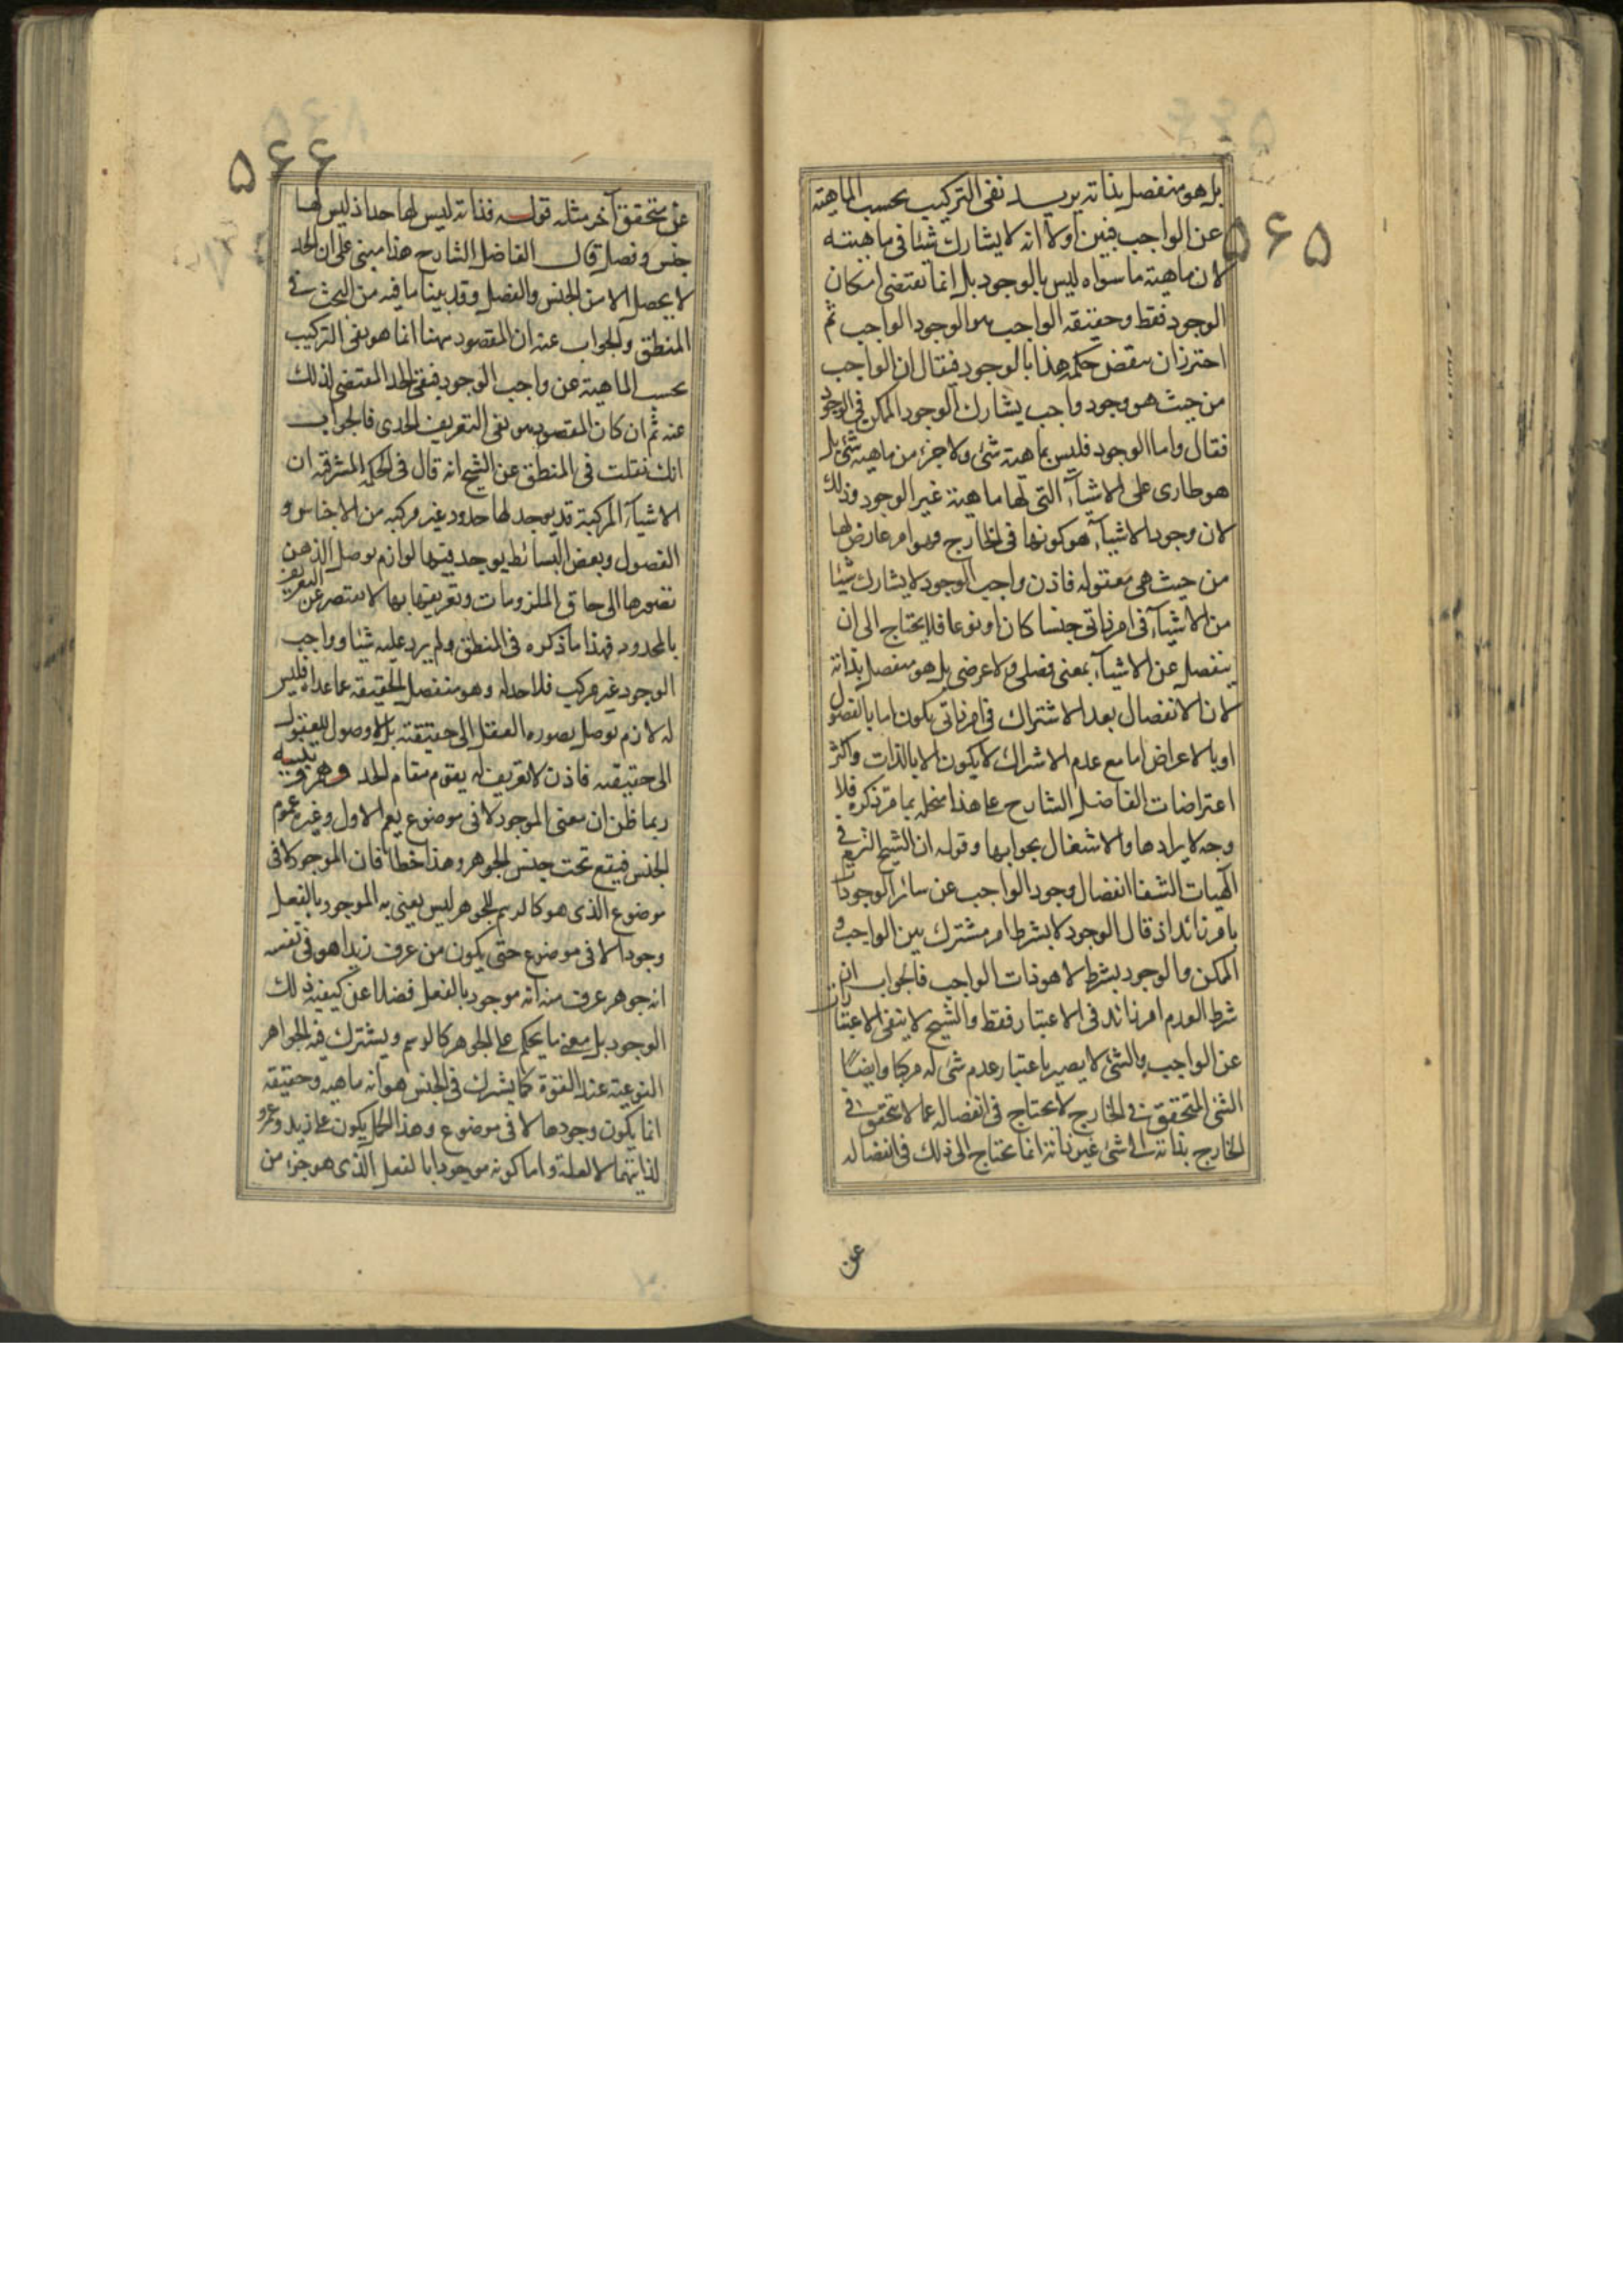 ۵۶۵
بل هو منفصل بذاته يريد نفى التركيب بحسب الماهيته
عن الواجب فبين اولا انه لا يشارك شيئا فى ماهيته
لان ماهيته ما سواه ليس بالوجود بل انما تقتضى امكان
الوجود فقط وحقيقه الواجب هو الوجود الواجب ثم
احترز ان ينقض حكمه هذا بالوجود فيقال ان الواجب
من حيث هو وجود واجب يشارك الوجود الممكن فى الوجود
فقال واما الوجود فليس بماهيته شئ ولا جزء من ماهيه شئ بل
هو طارى على الاشيآء التى لها ماهيته غير الوجود وذلك
لان وجود الاشيآء هو كونها فى الخارج وهو امر عارض لها
من حيث هى معقوله فاذن واجب الوجود لا يشارك شيئا
من الاشيآء فى امر ذاتى جنسا كان او نوعا فلا يحتاج الى ان
ينفصل عن الاشيآء بمعنى فصلى ولا عرضى بل هو منفصل بذاته
لان الانفصال بعد الاشتراك فى امر ذاتى يكون اما بالفصول
او بالاعراض اما مع عدم الاشراك لا يكون الا بالذات واكثر
اعتراضات الفاضل الشارح على هذا منحله بما مر ذكره فلا
وجه لايرادها والاشتغال بجوابها وقوله ان الشيخ التزم فى
آلهيات الشفا انفصال وجود الواجب عن سائر الوجودات
بامر زائد اذ قال الوجود لا بشرط امر مشترك بين الواجب و
الممكن والوجود بشرط لا هو ذات الواجب فالجواب ان
شرط العدم امر زائد فى الاعتبار فقط والشيخ لا ينفى الاعتبارات
عن الواجب والشئ لا يصير باعتبار عدم شئ له مركبا وايضًا
الشئ المتحقق فى الخارج لا يحتاج فى انفصاله عما لا تحقق فى
الخارج بذاته الى شئ غير ذاته انما يحتاج الى ذلك فى انفصاله
عن
۵۶۶
عن متحقق آخر مثله قوله فذاته ليس لها حد اذ ليس لها
جنس وفصل قال الفاضل الشارح هذا مبنى على ان الحد
لا يحصل الا من الجنس والفصل وقد بينا ما فيه من البحث فى
المنطق والجواب عنه ان المقصود ههنا انما هو نفى التركيب
بحسب الماهية عن واجب الوجود فنفى الحد المقتضى لذلك
عنه ثم ان كان المقصود هو نفى التعريف الحدى فالجواب
انك نقلت فى المنطق عن الشيخ انه قال فى الحكمه المشرقيه ان
الاشيآء المركبة قد يوجد لها حدود غير مركبه من الاجناس و
الفصول وبعض البسائط يوجد فيها لوازم يوصل الذهن
تصورها الى حاق الملزومات وتعريفها بها لا يقتصر عن التعريف
بالحدود فهذا ما ذكره فى المنطق ولم يرد عليه شيئا وواجب
الوجود غير مركب فلا حد له وهو منفصل الحقيقه عما عداه فليس
له لازم يوصل تصوره العقل الى حقيقته بل لا وصول للعقول
الى حقيقته فاذن لا تعريف له يقوم مقام الحد وهم وتنبيه
ربما ظن ان معنى الموجود لا فى موضوع يعم الاول وغيره عموم
الجنس فيقع تحت جنس الجوهر وهذا خطأ فان الموجود لا فى
موضوع الذى هو كالرسم للجوهر ليس يعنى به الموجود بالفعل
وجودا لا فى موضوع حتى يكون من عرف زيدا هو فى نفسه
انه جوهر عرف منه انه موجود بالفعل فضلا عن كيفية ذلك
الوجود بل معنى ما يحكم على الجوهر كالرسم ويشترك فيه الجواهر
النوعيته عند القوة كما يشترك فى الجنس هو انه ماهيه وحقيقه
انما يكون وجودها لا فى موضوع وهذا الحكم يكون على زيد وعمرو
لذاتيهما لا لعلة واما كونه موجودا بالفعل الذى هو جزء من